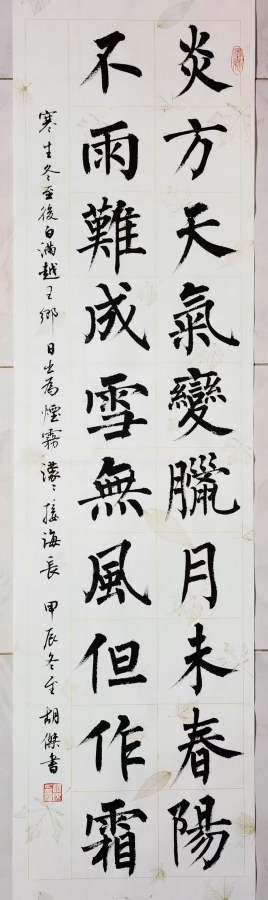 炎方天氣變臘月未春陽
不雨難成雪無風但作霜
寒生冬至後白滿越王鄉日出為煙霧濛〻接海長甲辰冬至胡傑書